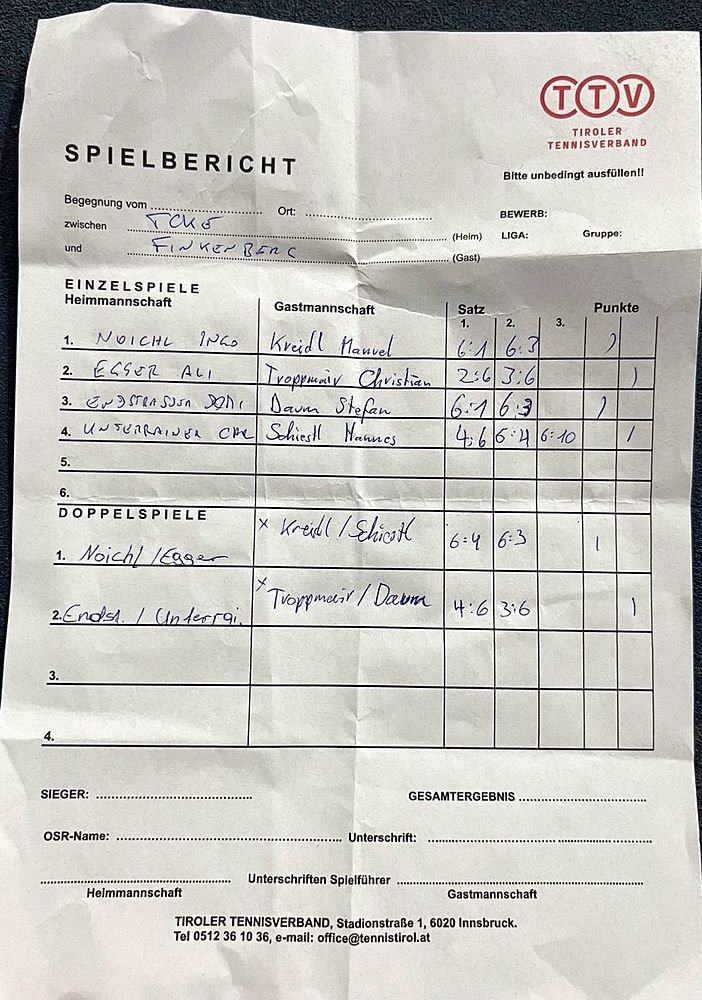 TTV
TIROLER
TENNISVERBAND
SPIELBERICHT
Bitte unbedingt ausfüllen!!
Begegnung vom Ort:
BEWERB:
zwischen TCKE (Heim) LIGA: Gruppe:
und FINKENBERG (Gast)
EINZELSPIELE
Heimmannschaft Gastmannschaft Satz Punkte
1. 2. 3.
1. NOICHL INGO Kreidl Manuel 6:1 6:3 1
2. EGGER ALI Troppmair Christian 2:6 3:6 1
3. Daum Stefan 6:1 6:3 1
4. UNTERRAINER Schiestl Hannes 4:6 6:4 6:10 1
5.
6.
DOPPELSPIELE
1. Noichl / Egger x Kreidl / Schiestl 6:4 6:3 1
2. Endst. / Unterrai. x Troppmair / Daum 4:6 3:6 1
3.
4.
SIEGER: GESAMTERGEBNIS
OSR-Name: Unterschrift:
Unterschriften Spielführer
Heimmannschaft Gastmannschaft
TIROLER TENNISVERBAND, Stadionstraße 1, 6020 Innsbruck.
Tel 0512 36 10 36, e-mail: office@tennistirol.at